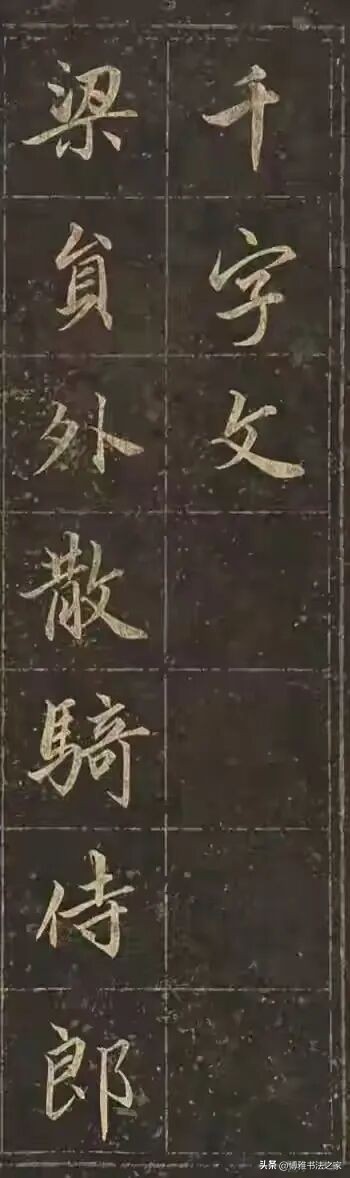 千字文
梁員外散騎侍郎
头条 @博雅书法之家